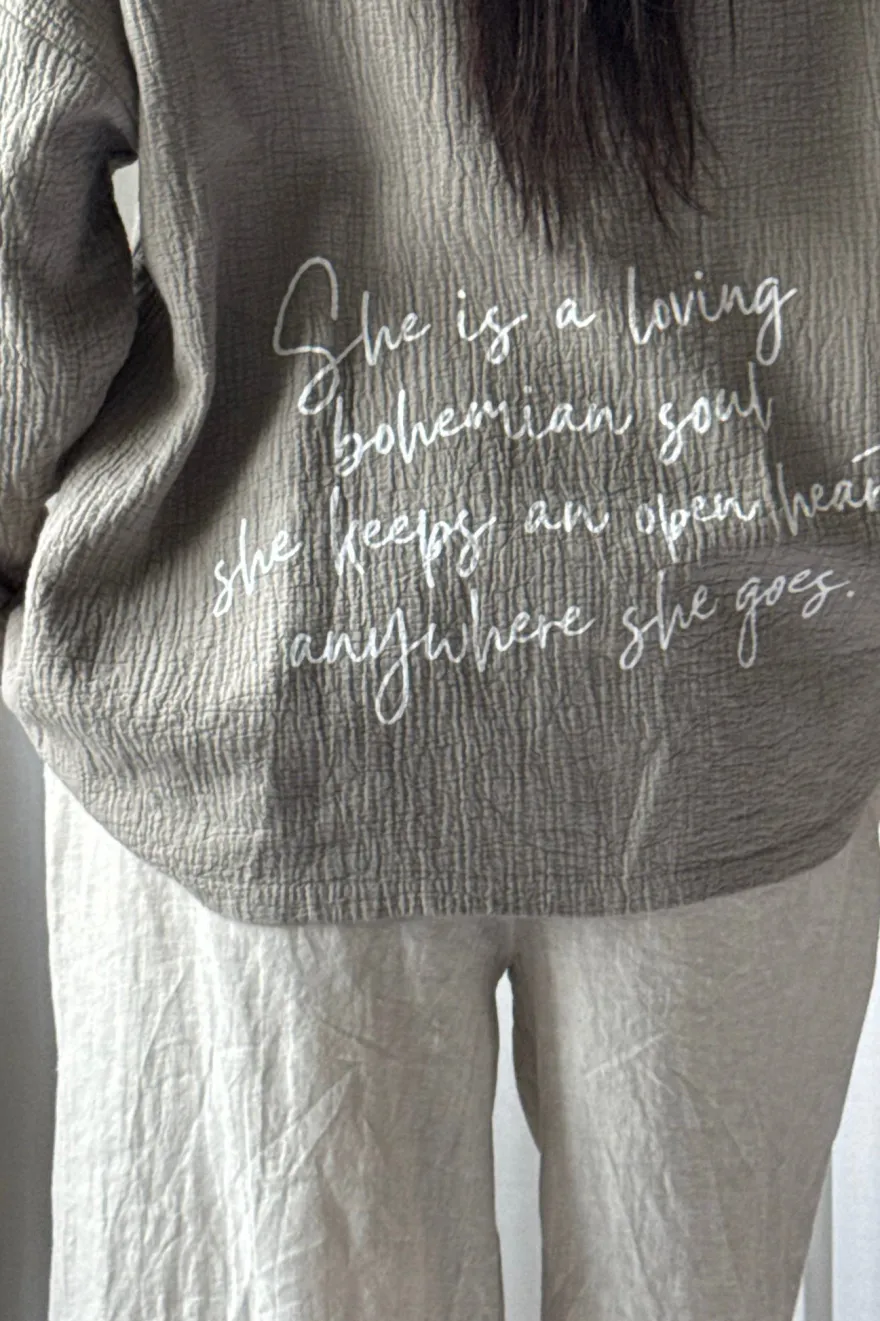 She is a loving
bohemian soul
she keeps an open heart
anywhere she goes.